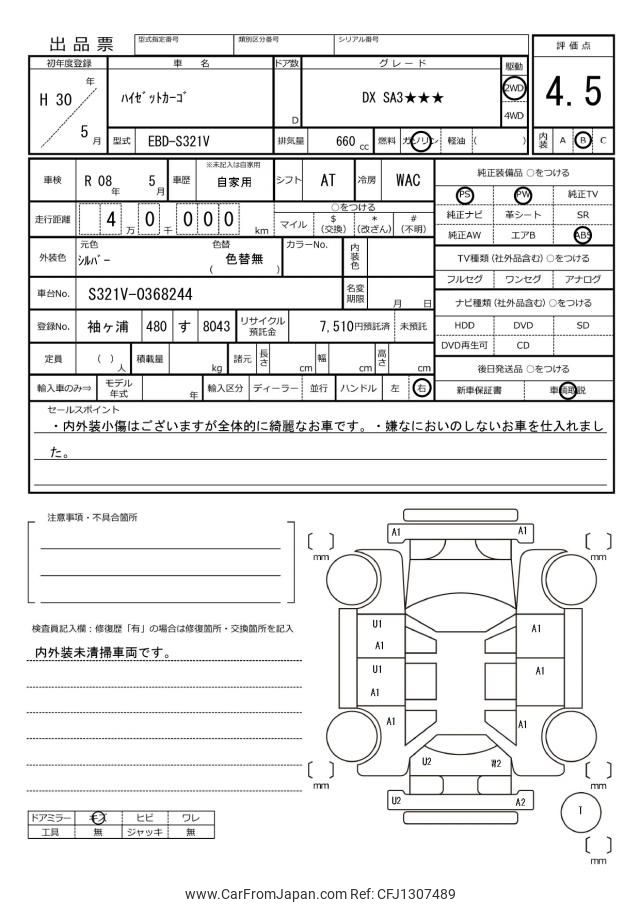 出品票 型式指定番号 類別区分番号 シリアル番号 評価点
初年度登録 車名 ドア数 グレード 駆動
H 30 年 ハイゼットカーゴ D DX SA3★★★ 2WD 4.5
5 月 4WD
型式 EBD-S321V 排気量 660 cc 燃料 ガソリン 軽油 ( ) 内装 A B C
車検 R 08 年 5 月 車歴 ※未記入は自家用 自家用 シフト AT 冷房 WAC
走行距離 4 万 0 千 0 0 0 km
○をつける
マイル $ (交換) * (改ざん) # (不明)
外装色 元色 シルバー 色替 ( 色替無 ) カラーNo. 内装色
車台No. S321V-0368244 名変期限 月 日
登録No. 袖ヶ浦 480 す 8043 リサイクル預託金 7,510円預託済 未預託
定員 ( ) 人 積載量 kg 諸元 長さ cm 幅 cm 高さ cm
輸入車のみ⇒ モデル年式 年 輸入区分 ディーラー 並行 ハンドル 左 右
純正装備品 ○をつける
PS PW 純正TV
純正ナビ 革シート SR
純正AW エアB ABS
TV種類(社外品含む) ○をつける
フルセグ ワンセグ アナログ
ナビ種類(社外品含む) ○をつける
HDD DVD SD
DVD再生可 CD
後日発送品 ○をつける
新車保証書 車輌取説
セールスポイント
・内外装小傷はございますが全体的に綺麗なお車です。・嫌なにおいのしないお車を仕入れまし
た。
注意事項・不具合箇所
検査員記入欄：修復歴「有」の場合は修復箇所・交換箇所を記入
内外装未清掃車両です。
ドアミラー キズ ヒビ ワレ
工具 無 ジャッキ 無
A1 A1
mm mm
U1 A1
A1
U1 A1
A1
A1 A1
U2 W2
mm mm
U2 A2
T
mm
www.CarFromJapan.com Ref: CFJ1307489